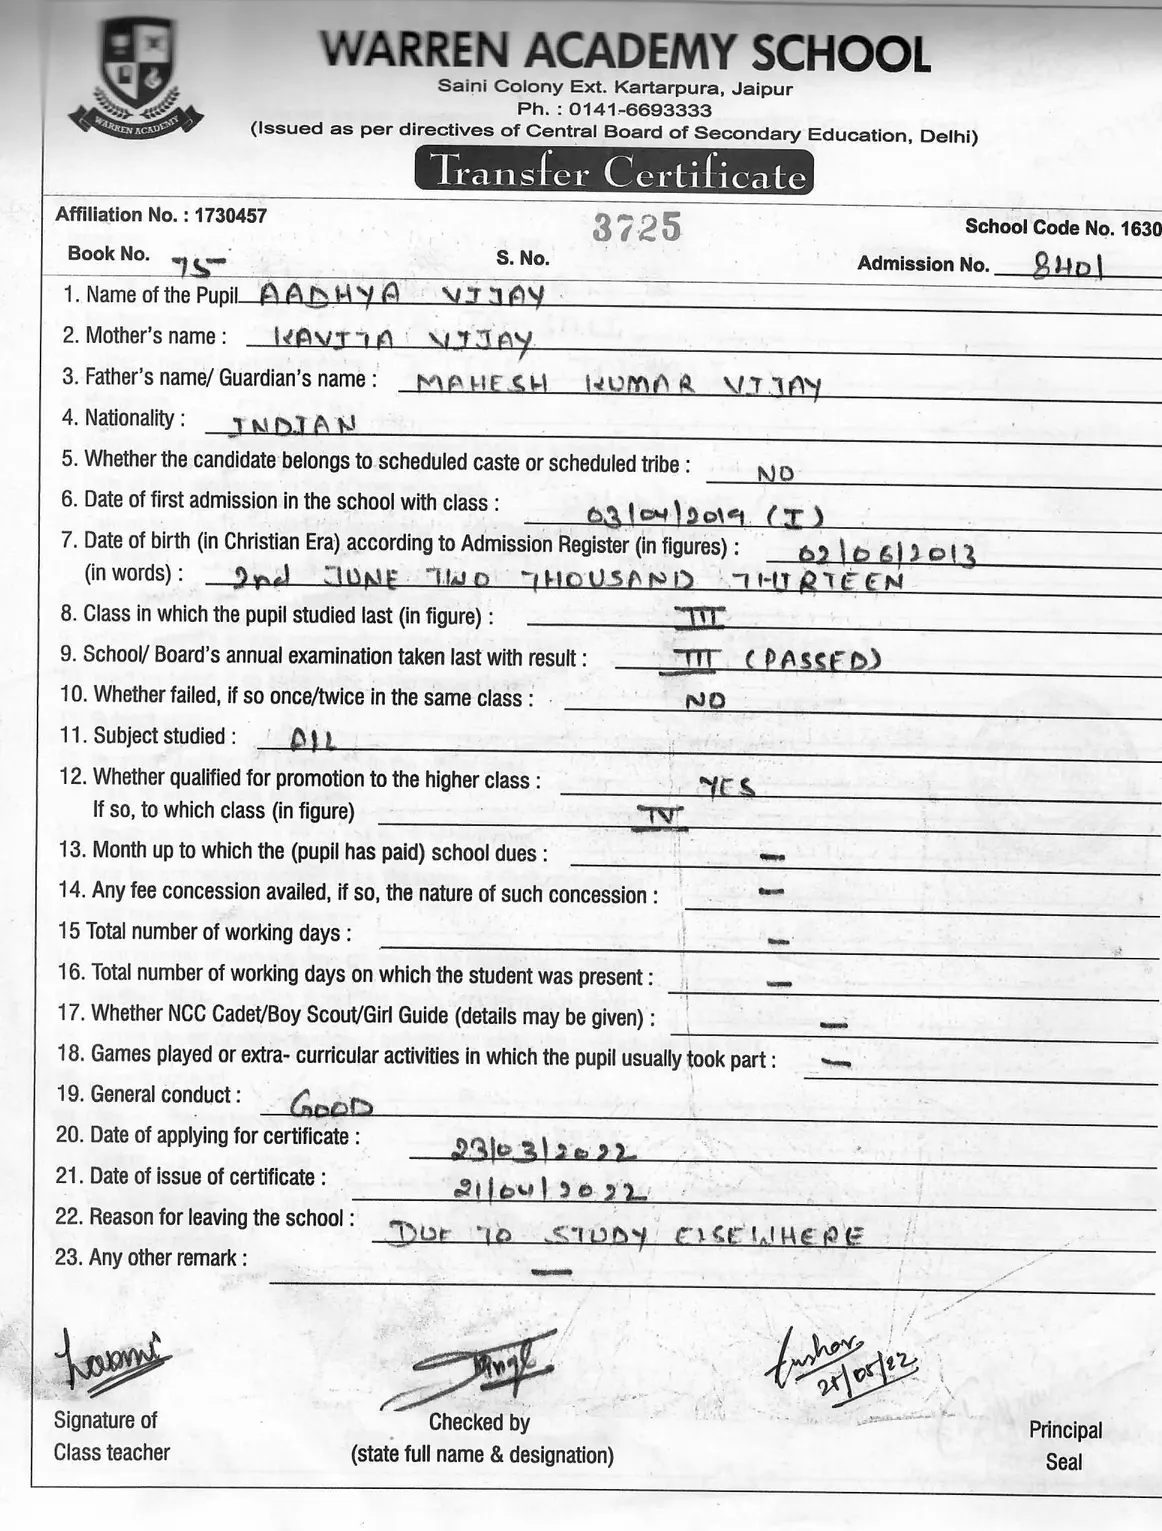 WARREN ACADEMY
WARREN ACADEMY SCHOOL
Saini Colony Ext. Kartarpura, Jaipur
Ph. : 0141-6693333
(Issued as per directives of Central Board of Secondary Education, Delhi)
Transfer Certificate
Affiliation No. : 1730457 3725 School Code No. 1630
Book No. 75 S. No. Admission No. 8401
1. Name of the Pupil AADHYA VIJAY
2. Mother's name : KAVITA VIJAY
3. Father's name/ Guardian's name : MAHESH KUMAR VIJAY
4. Nationality : INDIAN
5. Whether the candidate belongs to scheduled caste or scheduled tribe : NO
6. Date of first admission in the school with class : 03/04/2019 (I)
7. Date of birth (in Christian Era) according to Admission Register (in figures) : 02/06/2013
(in words) : 2nd JUNE TWO THOUSAND THIRTEEN
8. Class in which the pupil studied last (in figure) : III
9. School/ Board's annual examination taken last with result : III (PASSED)
10. Whether failed, if so once/twice in the same class : NO
11. Subject studied : ALL
12. Whether qualified for promotion to the higher class : YES
If so, to which class (in figure) IV
13. Month up to which the (pupil has paid) school dues : –
14. Any fee concession availed, if so, the nature of such concession : –
15 Total number of working days : –
16. Total number of working days on which the student was present : –
17. Whether NCC Cadet/Boy Scout/Girl Guide (details may be given) : –
18. Games played or extra- curricular activities in which the pupil usually took part : –
19. General conduct : GOOD
20. Date of applying for certificate : 23/03/2022
21. Date of issue of certificate : 21/04/2022
22. Reason for leaving the school : DUE TO STUDY ELSEWHERE
23. Any other remark : –
Tushar
25/05/22
Signature of Checked by Principal
Class teacher (state full name & designation) Seal